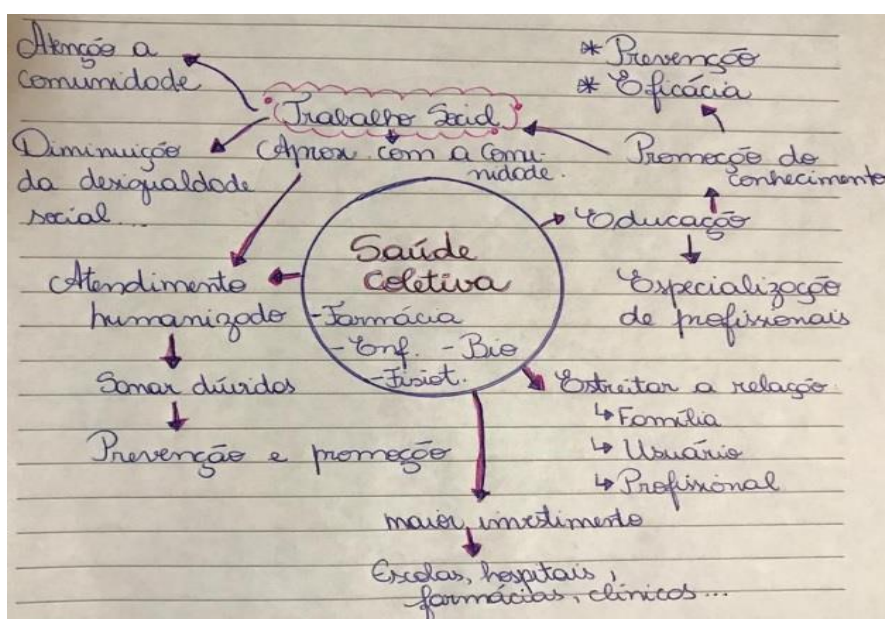 Atenção a
comunidade
* Prevenção
* Eficácia
Trabalho Social
Diminuição
da desigualdade
social...
Aprox. com a comu-
nidade.
Promoção do
conhecimento
Educação
Especialização
de profissionais
Saúde
Coletiva
- Farmácia
- Enf. - Bio
- Fisiot.
Atendimento
humanizado
Sanar dúvidas
Prevenção e promoção
Estreitar a relação
↳ Família
↳ Usuário
↳ Profissional
maior investimento
Escolas, hospitais,
farmácias, clínicas...